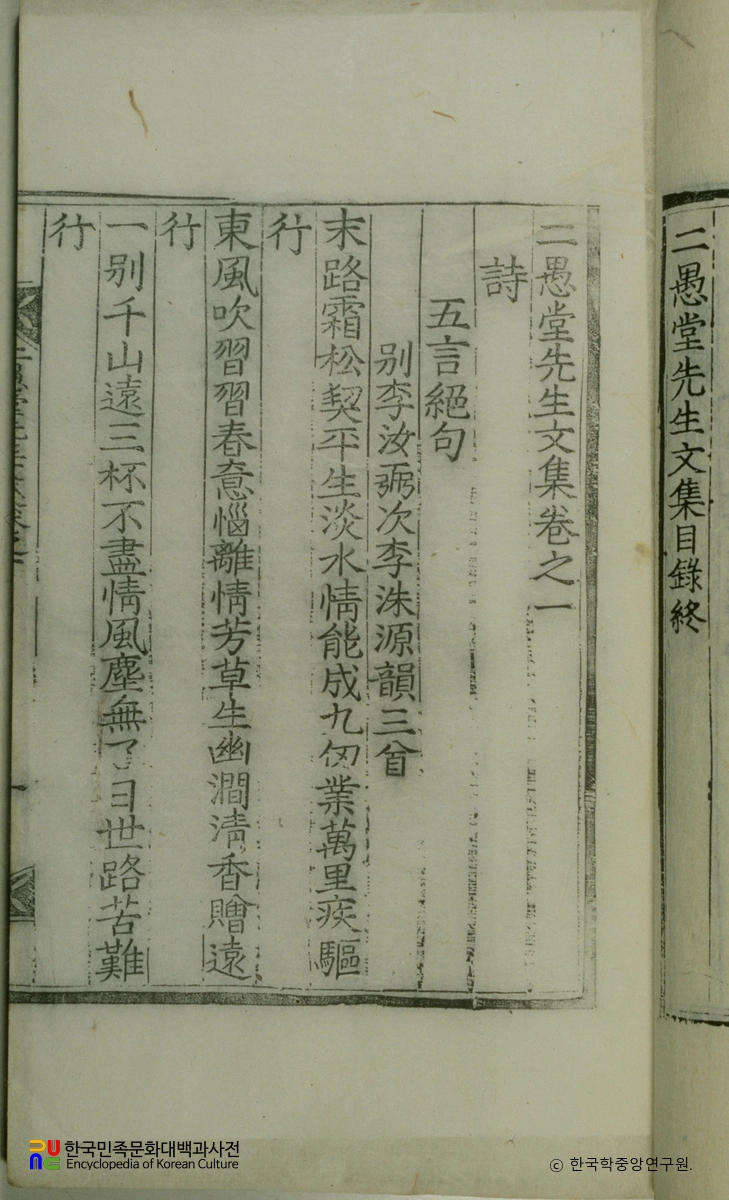 二愚堂先生文集目錄終
二愚堂先生文集卷之一
詩
五言絕句
別李汝弼次李洙源韻三首
末路霜松契平生淡水情能成九仞業萬里疾驅
行
東風吹習習春意惱離情芳草生幽澗淸香贈遠
行
一別千山遠三杯不盡情風塵無了日世路苦難
行
한국민족문화대백과사전
Encyclopedia of Korean Culture
ⓒ 한국학중앙연구원.